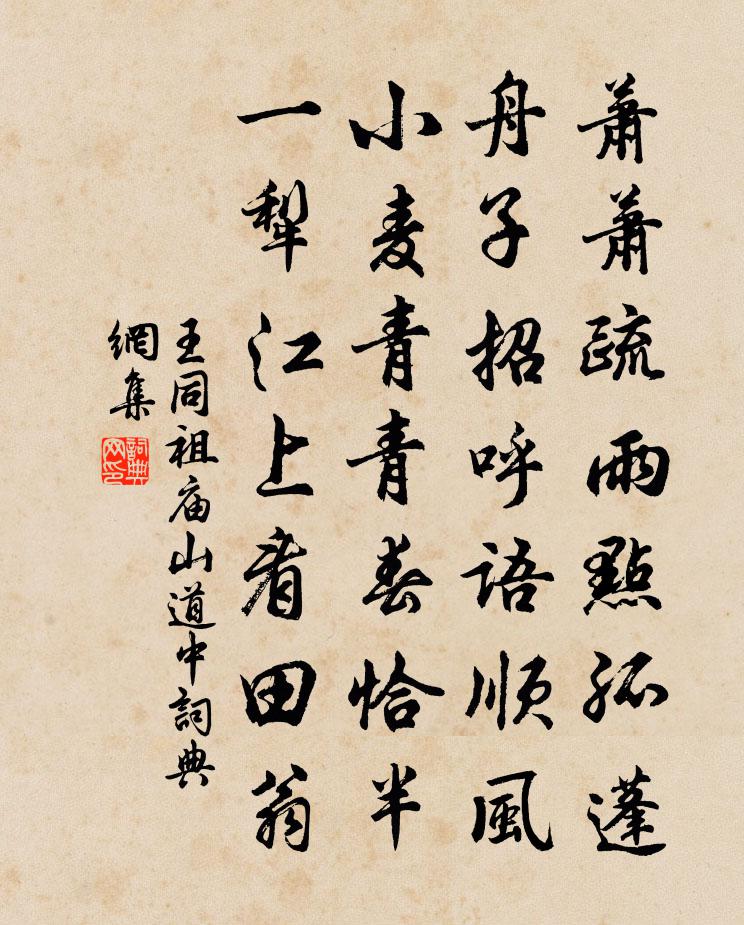 萧萧疏雨點孤蓬
舟子招呼語順風
小麦青青春恰半
一犁江上看田翁
王同祖庙山道中詞典
網集
詞典
网印